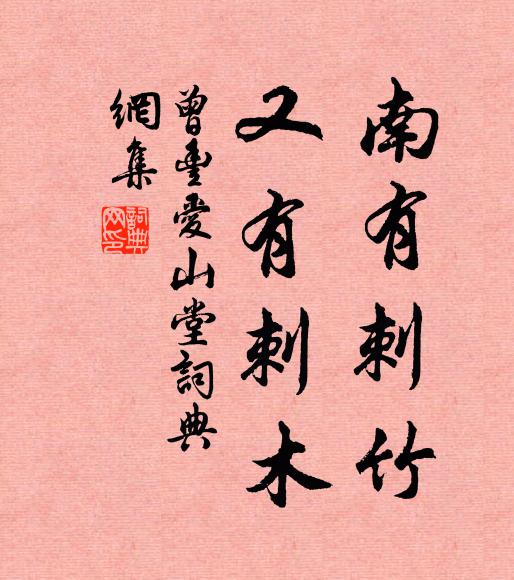 南有刺竹
又有刺木
曾豐愛山堂詞典
網集
詞典
網印